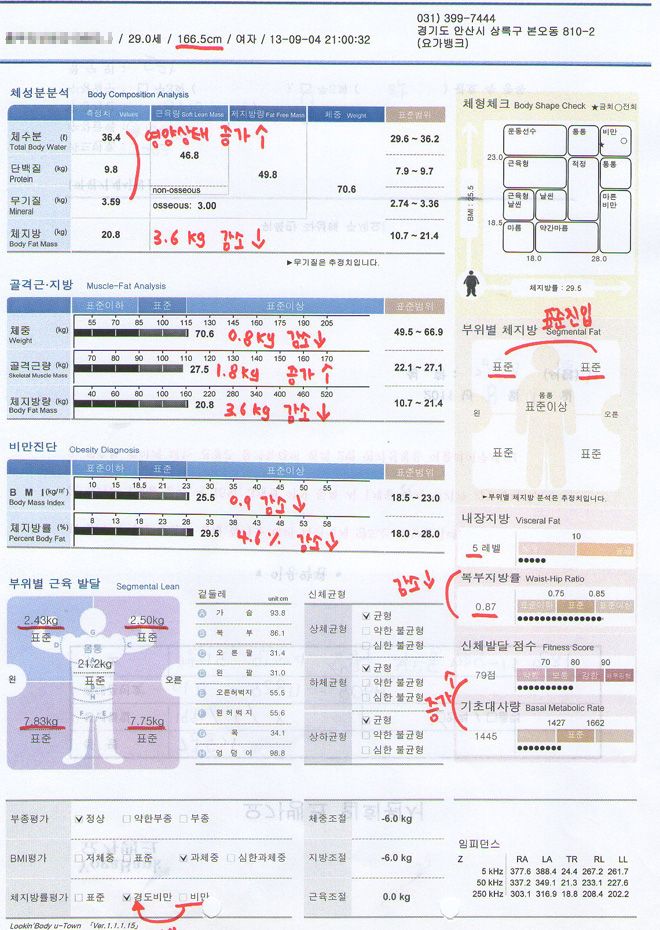 031) 399-7444
/ 29.0세 / 166.5cm / 여자 / 13-09-04 21:00:32
경기도 안산시 상록구 본오동 810-2
(요가뱅크)
체성분분석 Body Composition Analysis
측정치 Values 근육량 Soft Lean Mass 제지방량 Fat Free Mass 체중 Weight 표준범위
체수분 (ℓ) Total Body Water 36.4 29.6 ~ 36.2
영양상태 증가↑
46.8
단백질 (kg) Protein 9.8 49.8 7.9 ~ 9.7
70.6
non-osseous
무기질 (kg) Mineral 3.59 osseous: 3.00 2.74 ~ 3.36
체지방 (kg) Body Fat Mass 20.8 3.6 kg 감소↓ 10.7 ~ 21.4
▶무기질은 추정치입니다.
골격근·지방 Muscle-Fat Analysis
표준이하 표준 표준이상 표준범위
체중 (kg) Weight
55 70 85 100 115 130 145 160 175 190 205
70.6 0.8kg 감소↓ 49.5 ~ 66.9
골격근량 (kg) Skeletal Muscle Mass
70 80 90 100 110 120 130 140 150 160 170
27.5 1.8kg 증가↑ 22.1 ~ 27.1
체지방량 (kg) Body Fat Mass
40 60 80 100 160 220 280 340 400 460 520
20.8 3.6 kg 감소↓ 10.7 ~ 21.4
비만진단 Obesity Diagnosis
표준이하 표준 표준이상 표준범위
B M I (kg/㎡) Body Mass Index
10 15 18.5 21 23 30 35 40 45 50 55
25.5 0.9 감소↓ 18.5 ~ 23.0
체지방률 (%) Percent Body Fat
8 13 18 23 28 33 38 43 48 53 58
29.5 4.6% 감소↓ 18.0 ~ 28.0
부위별 근육 발달 Segmental Lean
2.43kg 2.50kg
표준 표준
몸통
21.2kg
표준
원 오른
7.83kg 7.75kg
표준 표준
겉둘레 unit cm
A 가 슴 93.8
B 복 부 86.1
C 오 른 팔 31.4
D 왼 팔 31.0
E 오른허벅지 55.5
F 왼허벅지 55.6
G 목 34.1
H 엉 덩 이 98.8
신체균형
상체균형
✓균형
약한 불균형
심한 불균형
하체균형
✓균형
약한 불균형
심한 불균형
상하균형
✓균형
약한 불균형
심한 불균형
체형체크 Body Shape Check ★금회○전회
운동선수 통통 비만
★ ○
23.0
근육형 적정 통통
BMI : 25.5
근육형날씬 날씬 마른비만
18.5
마름 약간마름
18.0 28.0
체지방률 : 29.5
부위별 체지방 Segmental Fat
표준진입
표준 표준
몸통
표준이상
원 오른
표준 표준
▶부위별 체지방 분석은 추정치입니다.
내장지방 Visceral Fat
10
5 레벨
감소↓
복부지방률 Waist-Hip Ratio
0.75 0.85
0.87 표준이하 표준 표준이상
신체발달 점수 Fitness Score
70 80 90
79점 약함 보통 강함
증가↑
기초대사량 Basal Metabolic Rate
1427 1662
1445 표준
부종평가 ✓정상 약한부종 부종
BMI평가 저체중 표준 ✓과체중 심한과체중
체지방률평가 표준 ✓경도비만 비만
체중조절 -6.0 kg
지방조절 -6.0 kg
근육조절 0.0 kg
임피던스
Z RA LA TR RL LL
5 kHz 377.6 388.4 24.4 267.2 261.7
50 kHz 337.2 349.1 21.3 233.1 227.6
250 kHz 303.1 316.9 18.8 208.4 202.2
Lookin'Body u-Town 「Ver.1.1.1.15」